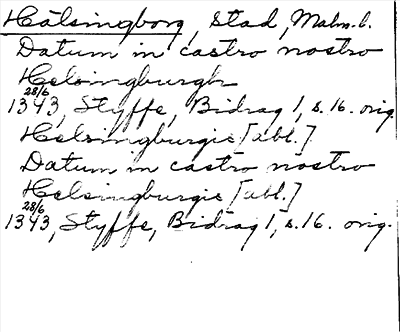 Hälsingborg, stad, Malm.l.
Datum in castro nostro
Helsingburgh
28/6
1343, Styffe, Bidrag 1, s. 16. orig.
Helsingburgis [abl.]
Datum in castro nostro
Helsingburgis [abl.]
28/6
1343, Styffe, Bidrag 1, s. 16. orig.